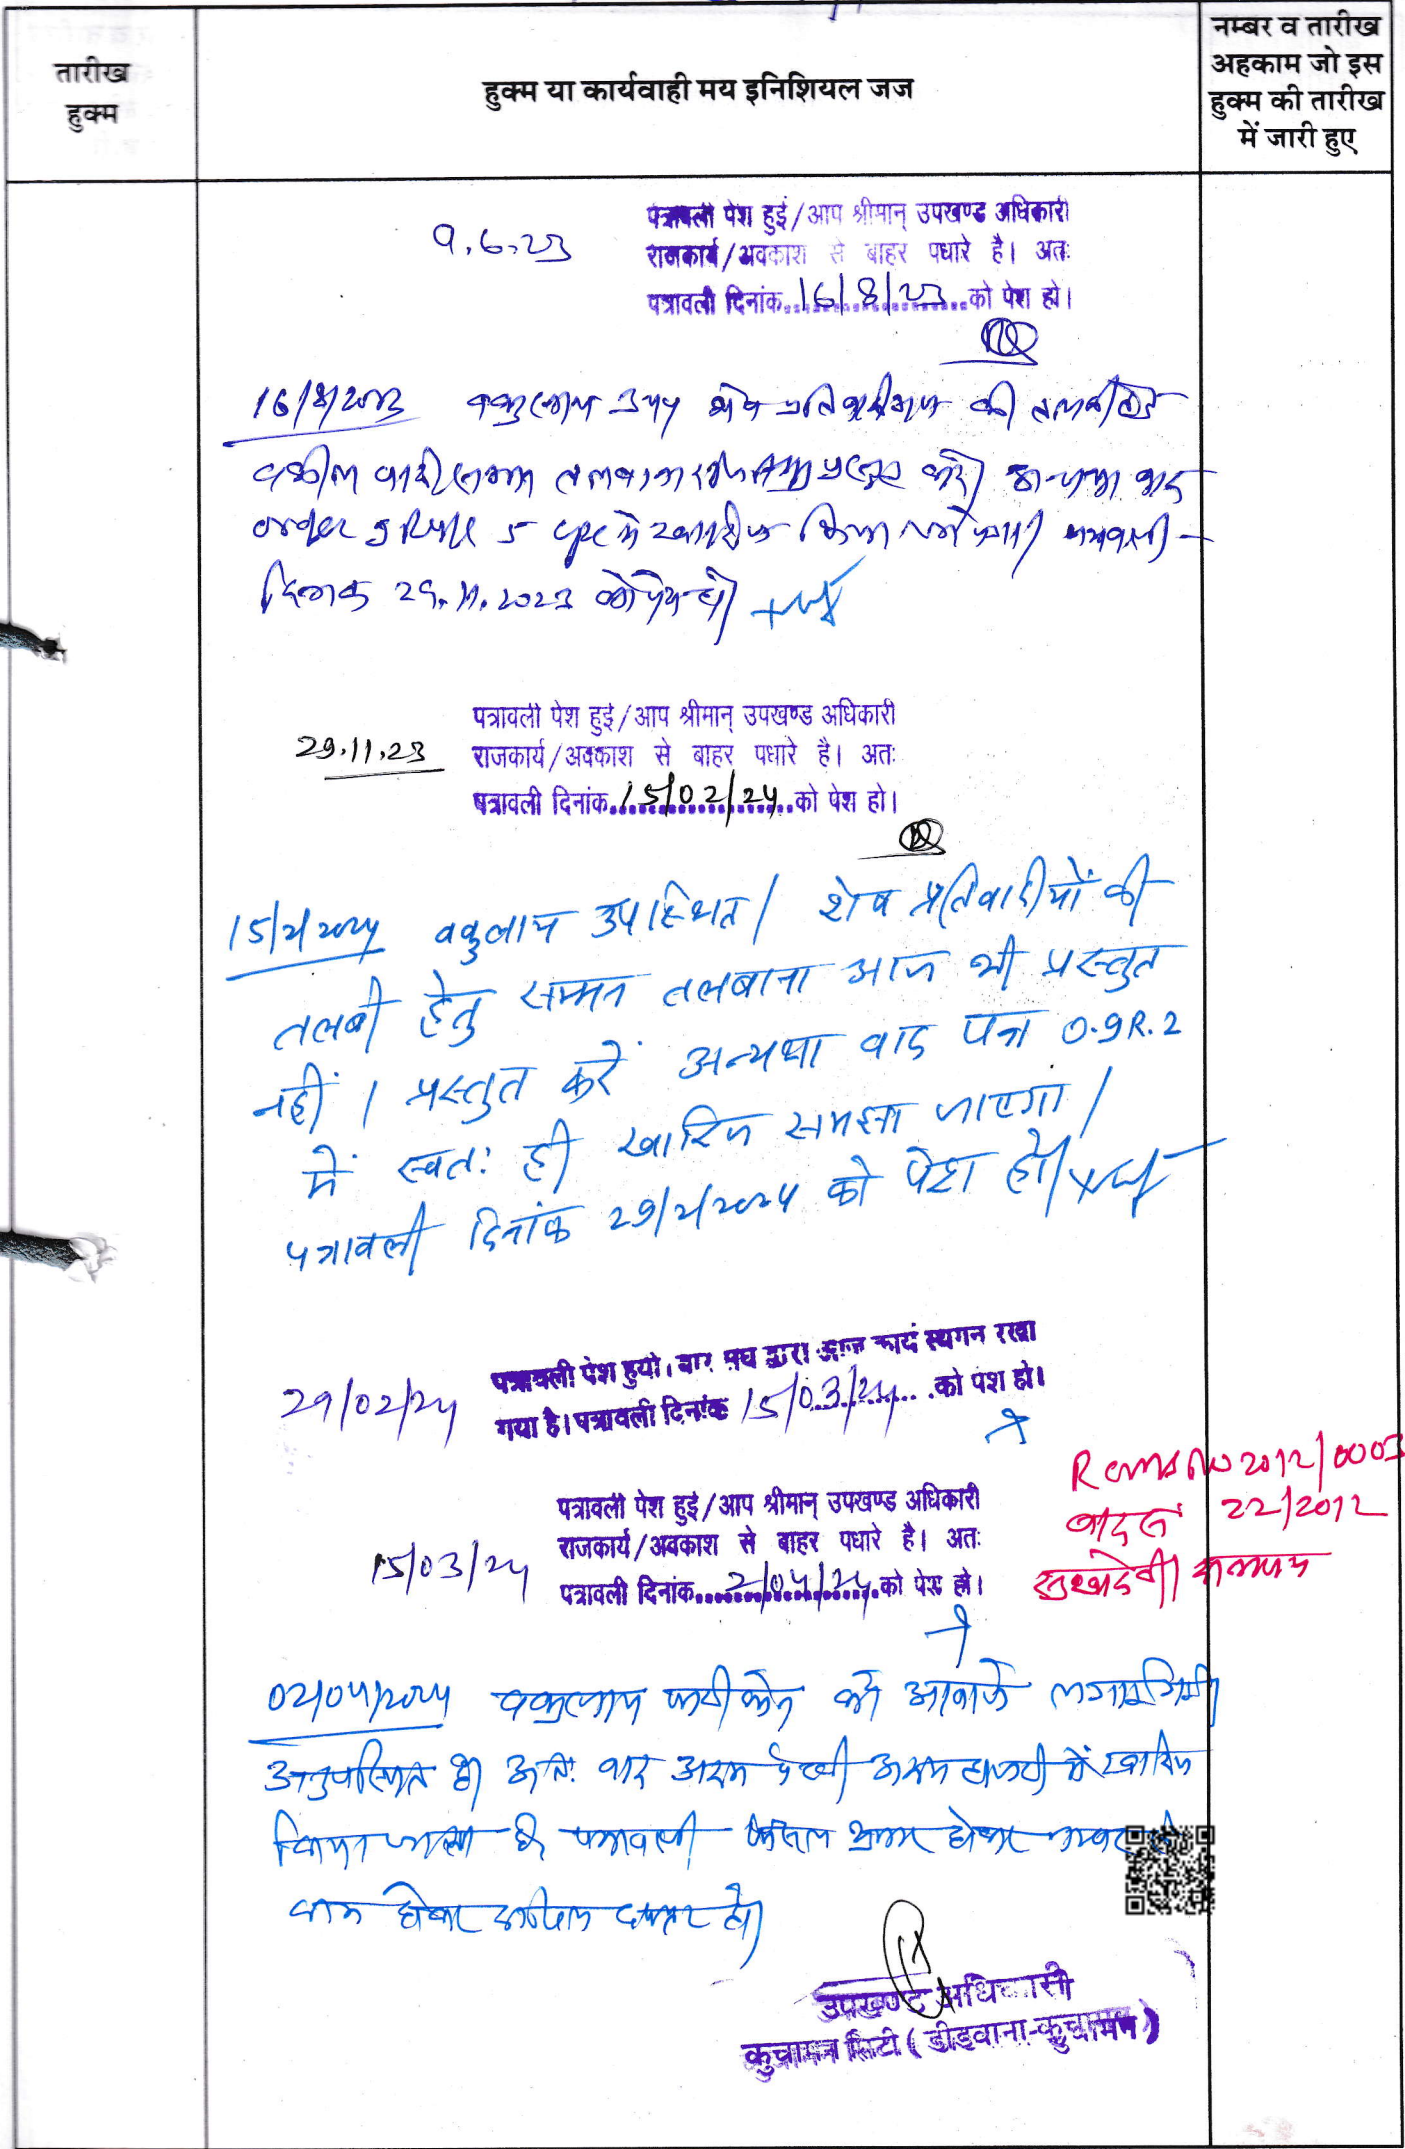 तारीख
हुक्म
हुक्म या कार्यवाही मय इनिशियल जज
नम्बर व तारीख
अहकाम जो इस
हुक्म की तारीख
में जारी हुए
9.6.23
पत्रावली पेश हुई/आप श्रीमान् उपखण्ड अधिकारी
राजकार्य/अवकाश से बाहर पधारे है। अतः
पत्रावली दिनांक 16/8/23 को पेश हो।
16/8/2023 वकुलाय उपप शेष प्रतिवादीगण की तलबी हेतु
वकील वादी तलबाना प्रस्तुत करें। अन्यथा वाद
order 9 Rule 5 cpc में खारीज किया जावेगा। पत्रावली
दिनांक 29.11.2023 को पेश हो।
29.11.23
पत्रावली पेश हुई/आप श्रीमान् उपखण्ड अधिकारी
राजकार्य/अवकाश से बाहर पधारे है। अतः
पत्रावली दिनांक 15/02/24 को पेश हो।
15/2/2024 वकुलाय उपस्थित। शेष प्रतिवादीयों की
तलबी हेतु सम्मन तलबाना आज भी प्रस्तुत
नहीं। प्रस्तुत करें अन्यथा वाद पत्र O.9R.2
में स्वतः ही खारिज समझा जाएगा।
पत्रावली दिनांक 29/2/2024 को पेश हो।
29/02/24
पत्रावली पेश हुयी। बार संघ द्वारा आज कार्य स्थगन रखा
गया है। पत्रावली दिनांक 15/03/24 को पेश हो।
Rcms no 2012/0003
वाद सं 22/2012
सुखीदेवी/
15/03/24
पत्रावली पेश हुई/आप श्रीमान् उपखण्ड अधिकारी
राजकार्य/अवकाश से बाहर पधारे है। अतः
पत्रावली दिनांक 2/04/24 को पेश हो।
02/04/2024 वकुलाय को आवाजें लगायी गयी
अनुपस्थित है। अतः वाद अदम पैरवी अदम हाजरी में खारिज
किया जाता है। पत्रावली फैसल शुमार होकर नम्बर से
कम होकर दाखिल दफ्तर हो।
उपखण्ड अधिकारी
कुचामन सिटी (डीडवाना-कुचामन)